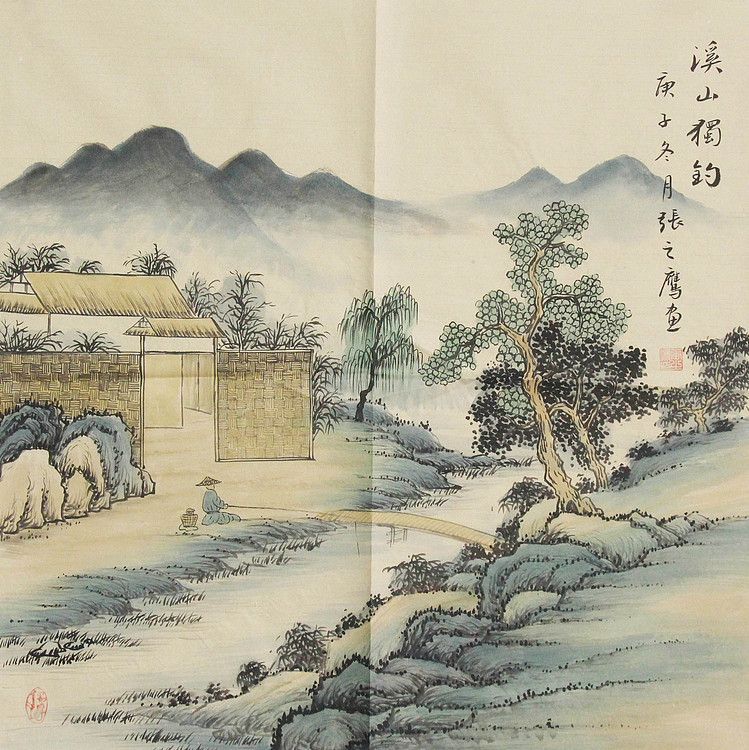 溪山獨釣
庚子冬月張之鷹画